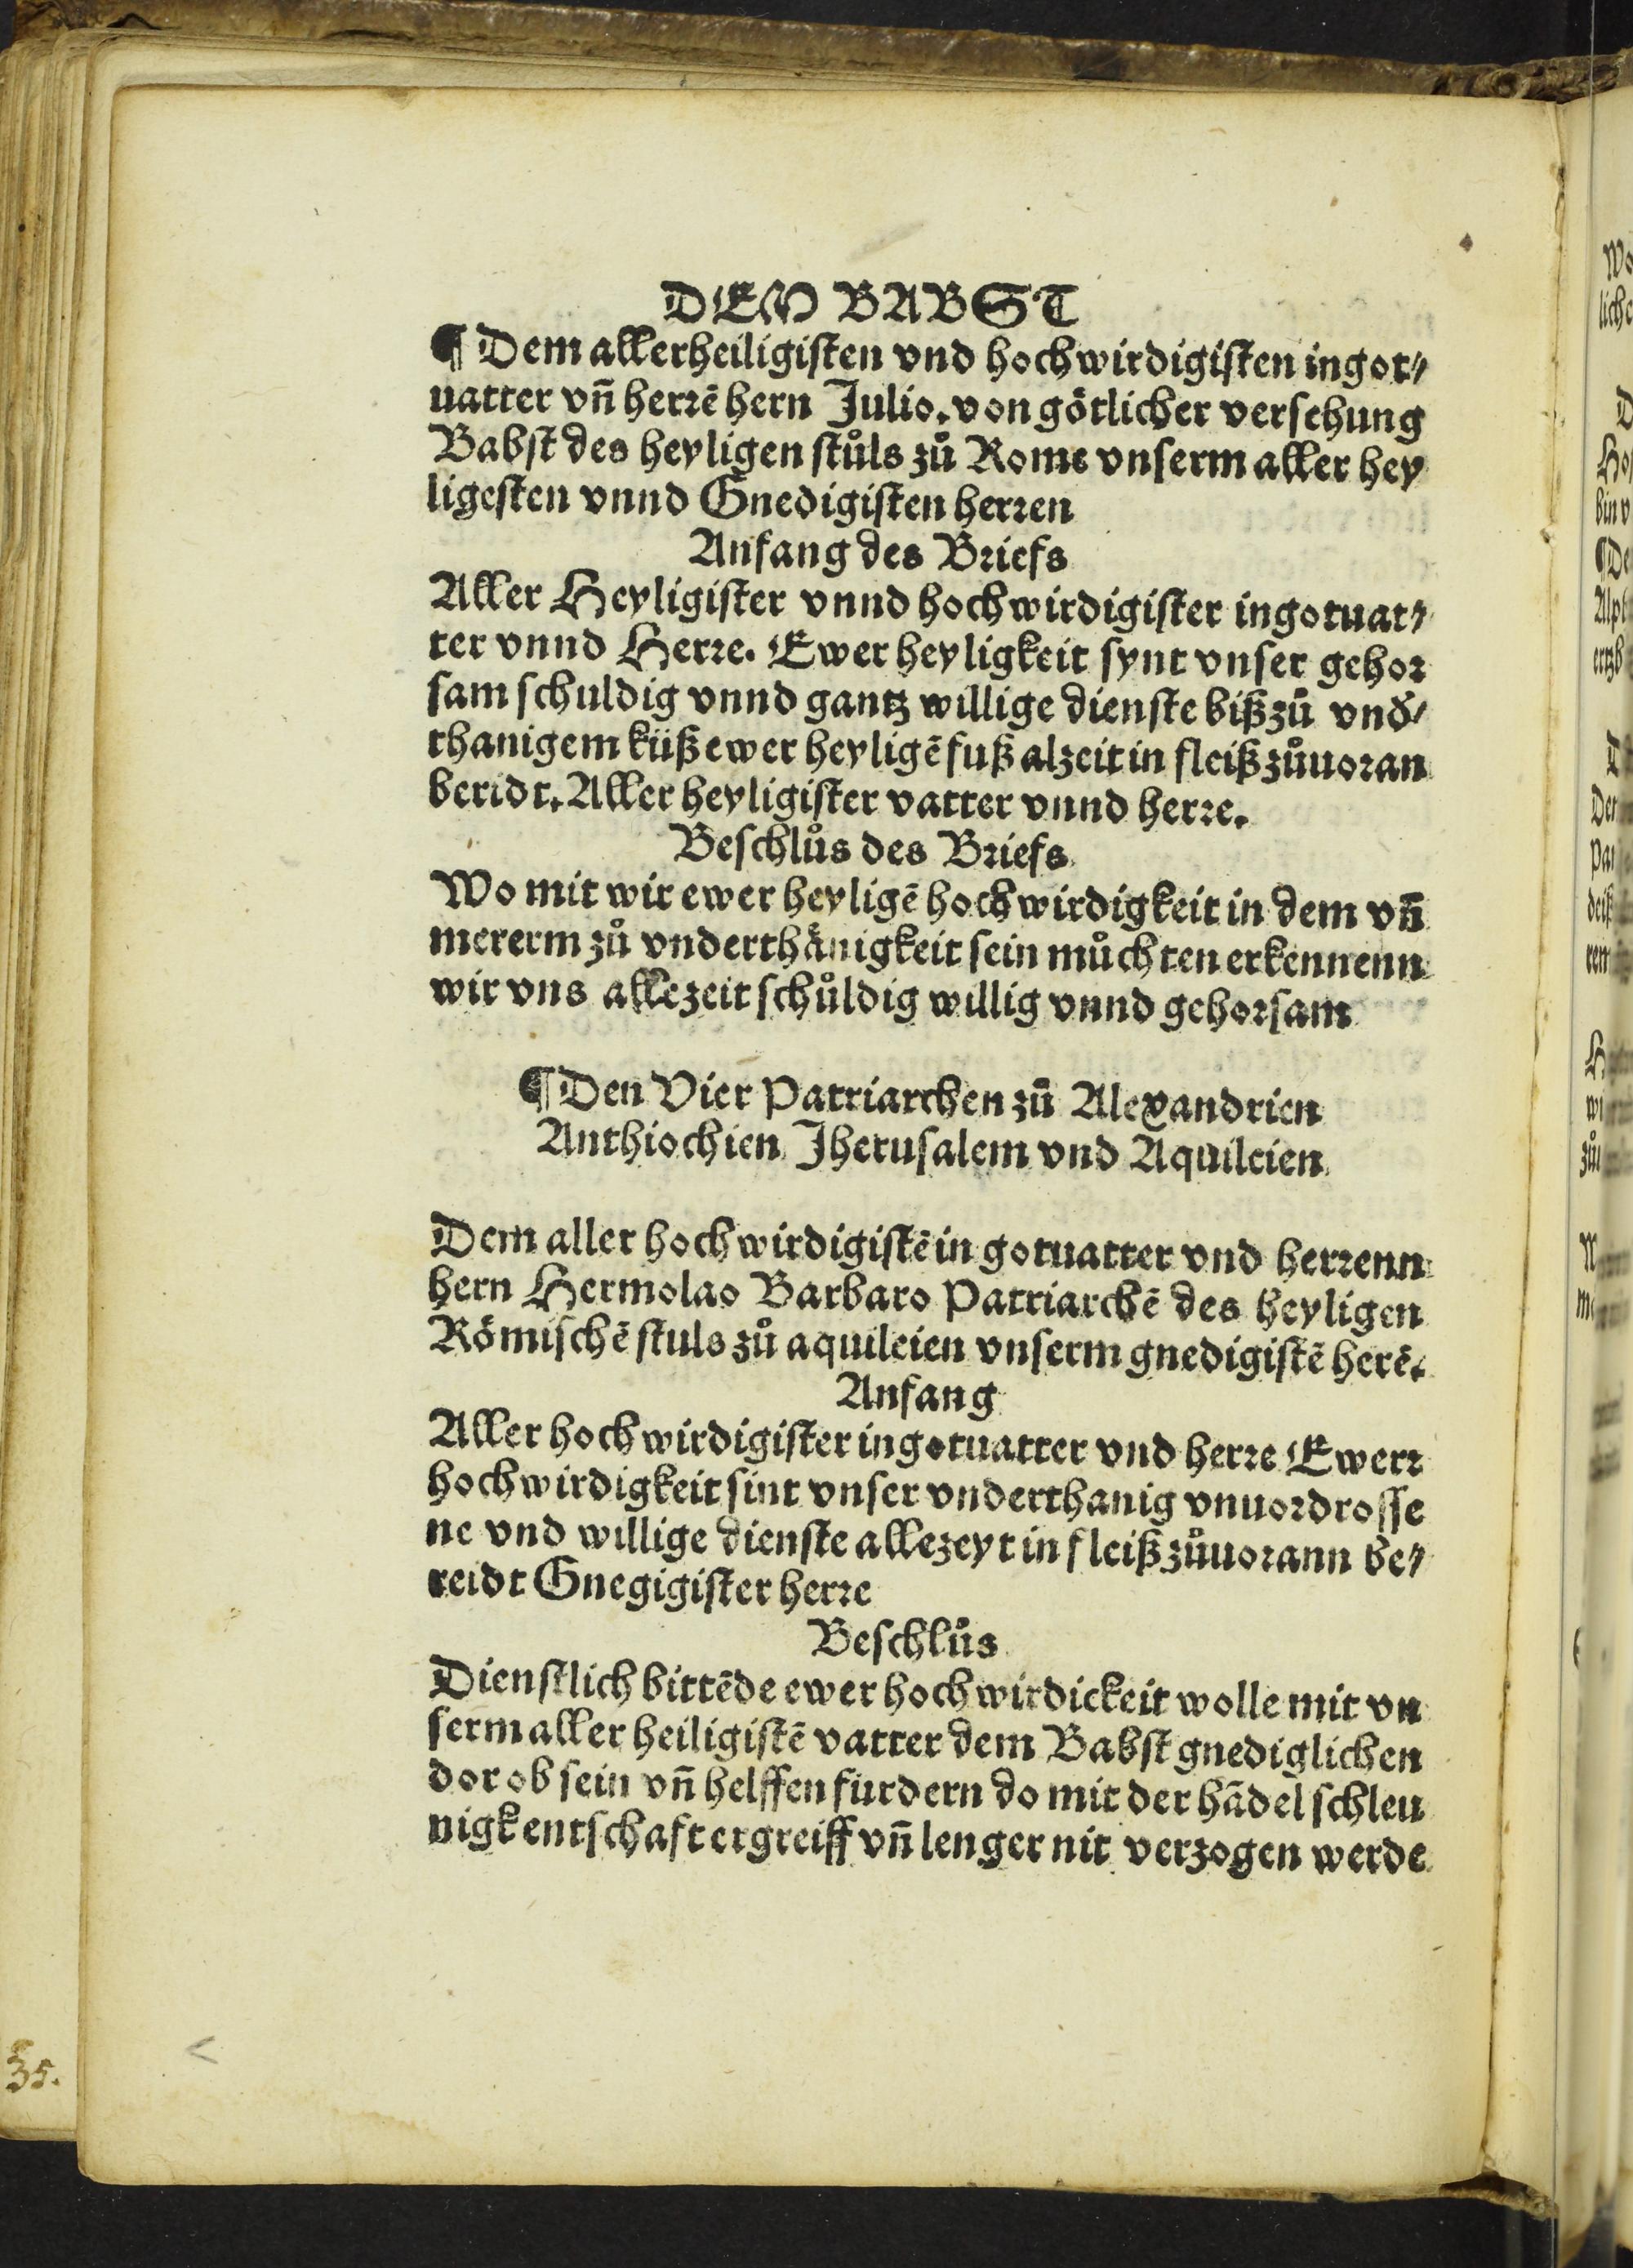 DEM BABST
¶ Dem allerheiligisten vnd hochwirdigisten in got⸗
uatter vñ herrē hern Julio. von götlicher versehung
Babst des heyligen stůls zů Rome vnserm aller hey
ligesten vnnd Gnedigisten herren
Anfang des Briefs
Aller Heyligister vnnd hochwirdigister in gotuat⸗
ter vnnd Herre. Ewer heyligkeit synt vnser gehor
sam schuldig vnnd gantz willige dienste biß zů vnd̛⸗
thanigem küß ewer heyligē fuß alzeit in fleiß zůuoran
beridt. Aller heyligister vatter vnnd herre.
Beschlůs des Briefs
Wo mit wir ewer heyligē hochwirdigkeit in dem vñ
mererm zů vnderthänigkeit sein můchten erkennenn
wir vns allezeit schůldig willig vnnd gehorsam
¶ Den Vier Patriarchen zů Alexandrien
Anthiochien Jherusalem vnd Aquileien
Dem aller hochwirdigistē in gotuatter vnd herrenn
hern Hermolao Barbaro Patriarchē des heyligen
Römischē stuls zů aquileien vnserm gnedigistē herē.
Anfang
Aller hochwirdigister in gotuatter vnd herre Ewerr
hochwirdigkeit sint vnser vnderthanig vnuordrosse
ne vnd willige dienste allezeyt in fleiß zůuorann be⸗
reidt Gnegigister herre
Beschlůs
Dienstlich bittēde ewer hochwirdickeit wolle mit vn
serm aller heiligistē vatter dem Babst gnediglichen
dor ob sein vñ helffen furdern do mit der hādel schleu
nigk entschaft ergreiff vñ lenger nit verzogen werde
35.